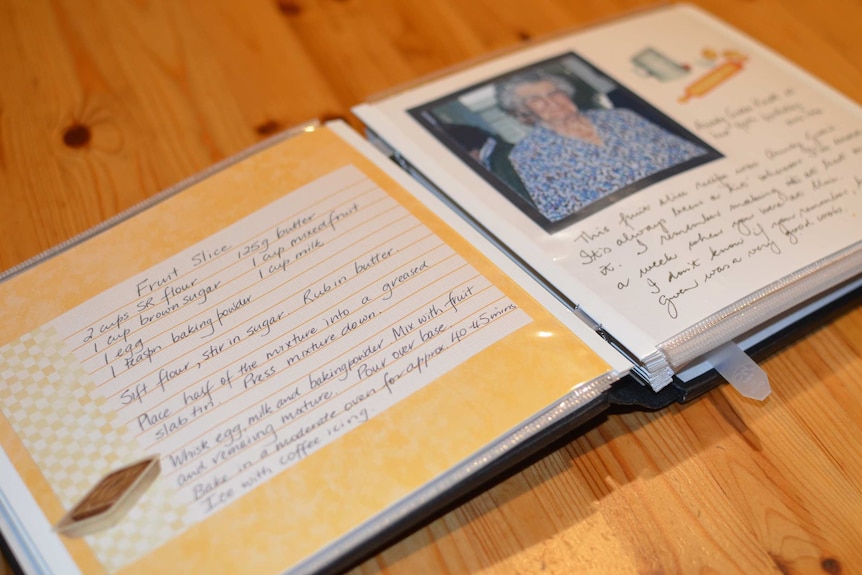 Fruit Slice
2 cups SR flour 125g butter
1 cup brown sugar 1 cup mixed fruit
1 egg 1 cup milk
1 teaspn baking powder
Sift flour, stir in sugar. Rub in butter.
Place half of the mixture into a greased
slab tin. Press mixture down.
Whisk egg, milk and baking powder Mix with fruit
and remaiing mixture. Pour over base
Bake in a moderate oven for approx 40-45 mins
Ice with coffee icing.
This fruit slice recipe was
It's always been a hit
it. I remember making it at
a week when you were
I don't know if you remember
was a very good